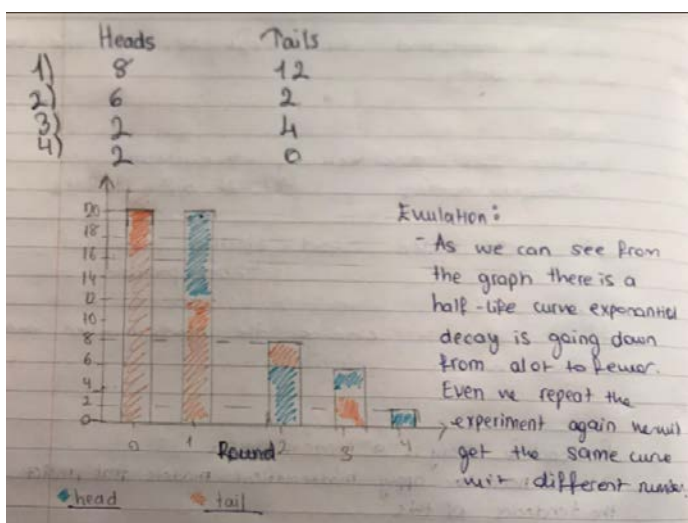 Heads Tails
1) 8 12
2) 6 2
3) 2 4
4) 2 0
20
18
16
14
12
10
8
6
4
2
0
0 1 Round 2 3 4
head tail
Evulation:
- As we can see from
the graph there is a
half-life curve exponantial
decay is going down
from alot to fewer.
Even we repeat the
experiment again we will
get the same curve
wit different number.